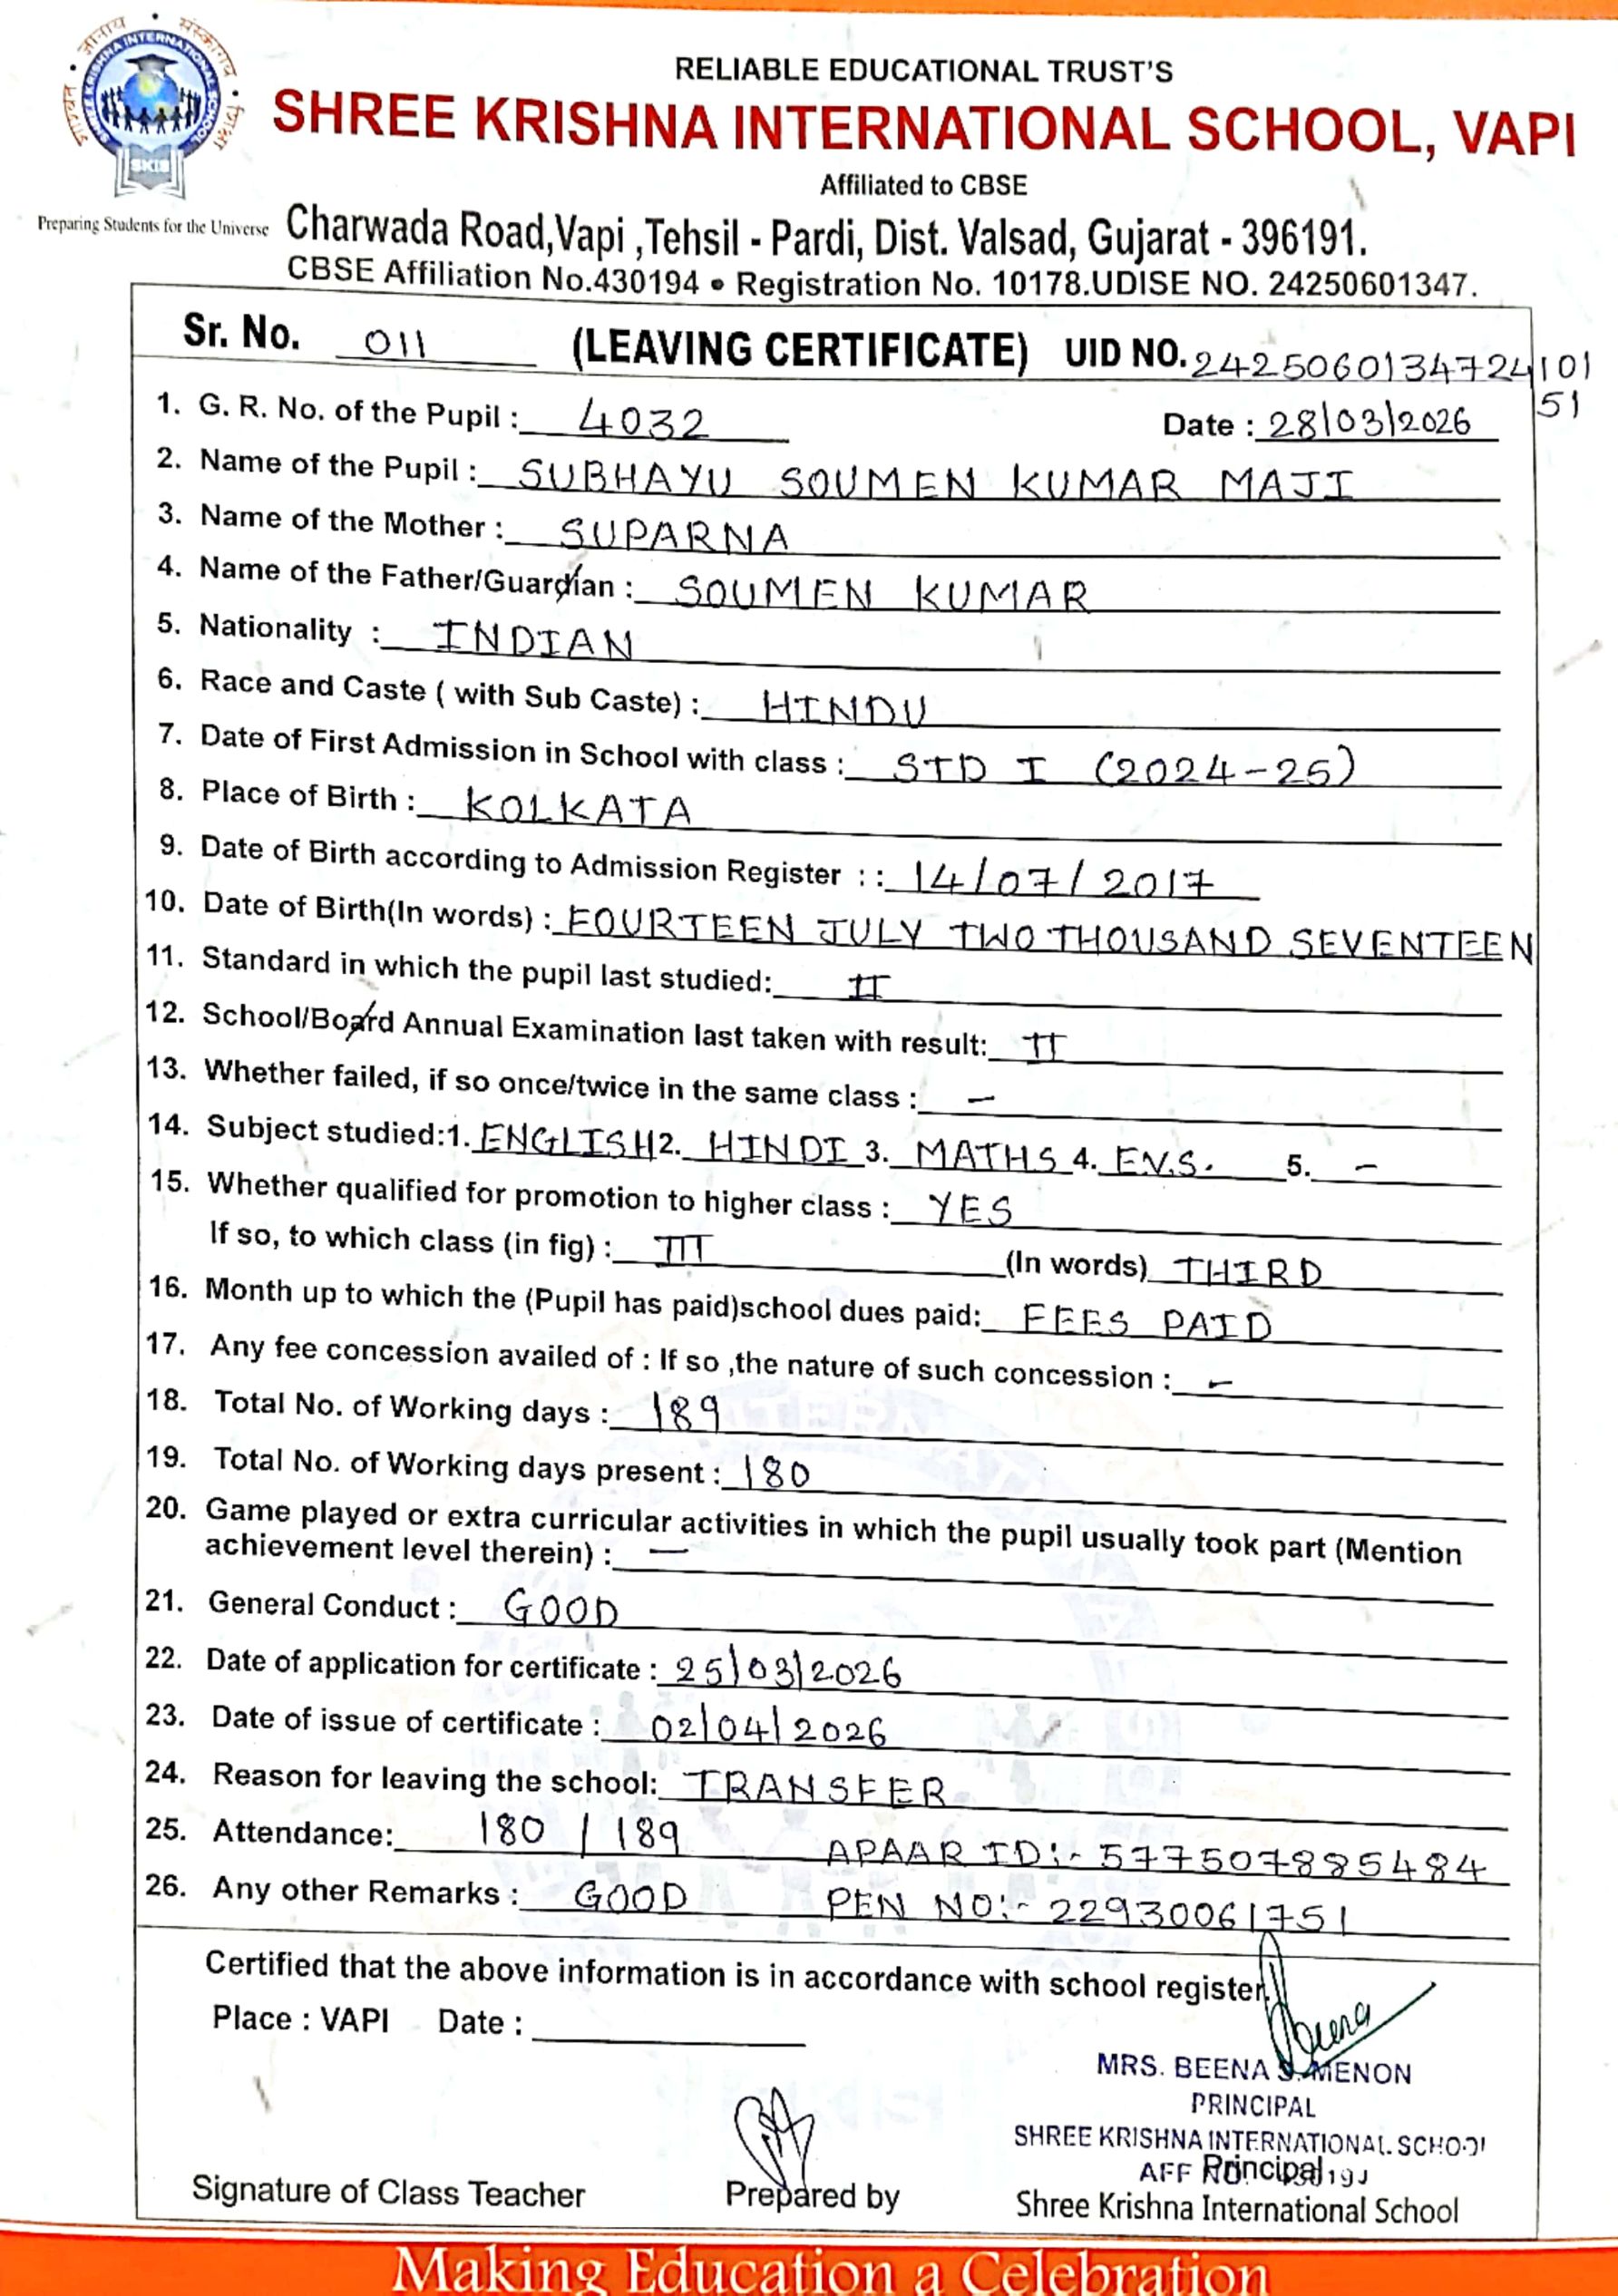 RELIABLE EDUCATIONAL TRUST'S
SHREE KRISHNA INTERNATIONAL SCHOOL, VAPI
Affiliated to CBSE
SHREE KRISHNA INTERNATIONAL SCHOOL
SKIS
Preparing Students for the Universe
Charwada Road,Vapi ,Tehsil - Pardi, Dist. Valsad, Gujarat - 396191.
CBSE Affiliation No.430194 • Registration No. 10178.UDISE NO. 24250601347.
Sr. No. 011 (LEAVING CERTIFICATE) UID NO. 242506013472410151
1. G. R. No. of the Pupil : 4032 Date : 28/03/2026
2. Name of the Pupil : SUBHAYU SOUMEN KUMAR MAJI
3. Name of the Mother : SUPARNA
4. Name of the Father/Guardian : SOUMEN KUMAR
5. Nationality : INDIAN
6. Race and Caste ( with Sub Caste) : HINDU
7. Date of First Admission in School with class : STD I (2024-25)
8. Place of Birth : KOLKATA
9. Date of Birth according to Admission Register : : 14/07/2017
10. Date of Birth(In words) : FOURTEEN JULY TWO THOUSAND SEVENTEEN
11. Standard in which the pupil last studied: II
12. School/Board Annual Examination last taken with result: II
13. Whether failed, if so once/twice in the same class : –
14. Subject studied:1. ENGLISH 2. HINDI 3. MATHS 4. E.V.S. 5. –
15. Whether qualified for promotion to higher class : YES
If so, to which class (in fig) : III (In words) THIRD
16. Month up to which the (Pupil has paid)school dues paid: FEES PAID
17. Any fee concession availed of : If so ,the nature of such concession : –
18. Total No. of Working days : 189
19. Total No. of Working days present : 180
20. Game played or extra curricular activities in which the pupil usually took part (Mention
achievement level therein) : —
21. General Conduct : GOOD
22. Date of application for certificate : 25/03/2026
23. Date of issue of certificate : 02/04/2026
24. Reason for leaving the school: TRANSFER
25. Attendance: 180 / 189 APAAR ID:- 577507885484
26. Any other Remarks : GOOD PEN NO:- 22930061751
Certified that the above information is in accordance with school register.
Place : VAPI Date :
MRS. BEENA S. MENON
PRINCIPAL
SHREE KRISHNA INTERNATIONAL SCHOOL
AFF NO. Principal
Signature of Class Teacher Prepared by Shree Krishna International School
Making Education a Celebration